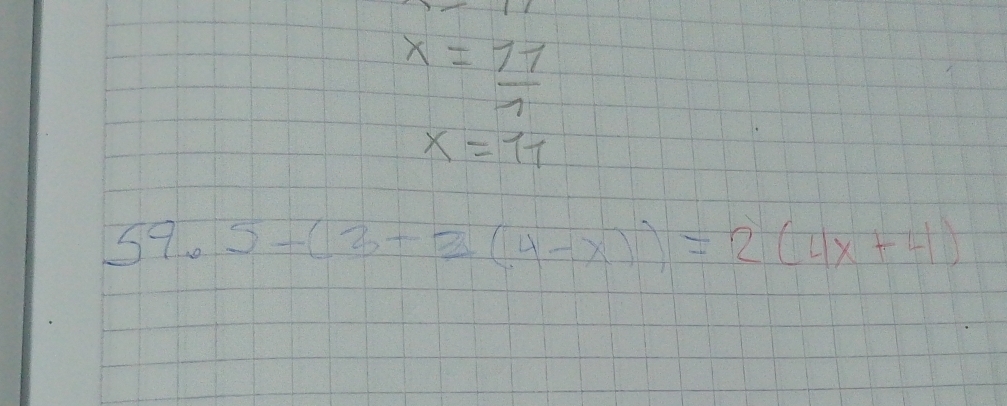 x = 11
1
x = 11
59. 5 - (3 - 2 (4 - x)) = 2 (4x + 4)